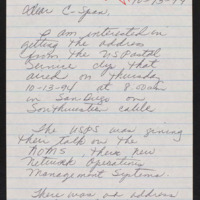 10-13-94
Dear C-Span,
I am interested in
getting the address
from the US Postal
Service clip that
aired on Thursday
10-13-94 at 8:00am
in San Diego on
Southwestern cable
The USPS was giving
their talk on the
NOMS, there new
Network Operating
Management Systems.
There was an address